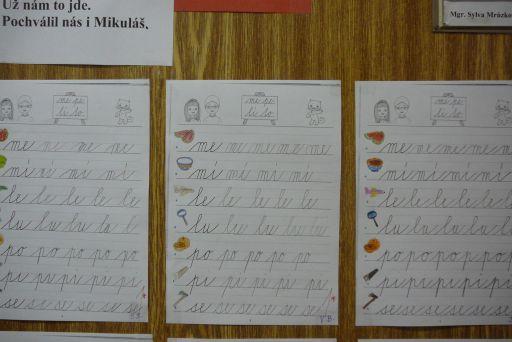 Už nám to jde.
Pochválil nás i Mikuláš.
Mgr. Sylva Mrázko
me pe
lu so
me pe
lu so
me pe
lu so
me ne me ne
mi mi mi mi
le le le le le
lu lu lu lu l
po po po po po
pi pi pi pi pi
se se se se se se
me me me me me
mi mi mi mi
le le le le le
lu lu lu lu lu
po po po po po
pi pi pi pi pi
se se se se se se
V.B.
me me me me m
mi mi mi mi mi
le le le le le le
lu lu lu lu lu
po po po po po p
pi pi pi pi pi
se se se se se se